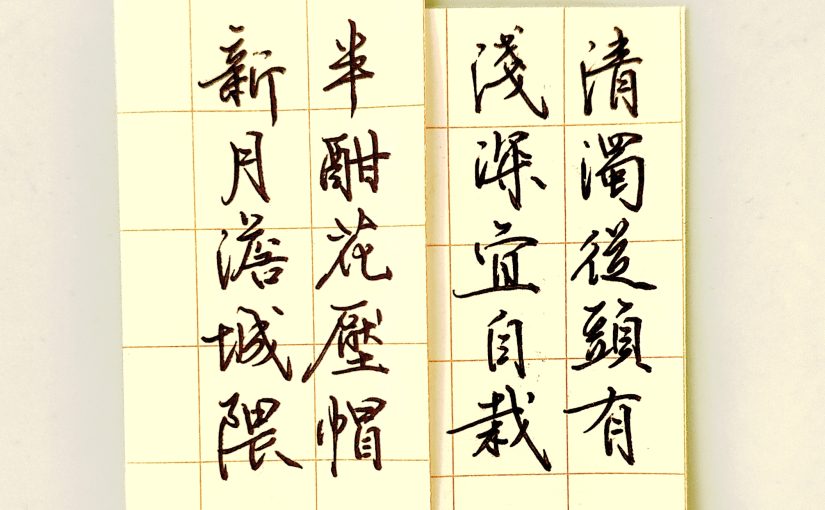 清濁從頭有
淺深宜自栽
半酣花壓帽
新月澹城隈